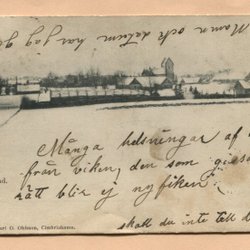 Namn och datum har jag g
Många helsningar af
från viken, den som
rätt blir ej nyfiken.
skall du inte tell
nd.
Carl O. Ohlsson, Cimbrishamn.